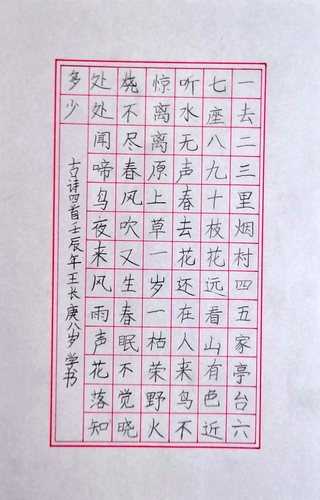 一去二三里烟村四五家亭台六
七座八九十枝花远看山有色近
听水无声春去花还在人来鸟不
惊离离原上草一岁一枯荣野火
烧不尽春风吹又生春眠不觉晓
处处闻啼鸟夜来风雨声花落知
多少
古诗四首壬辰年王长庚八岁学书